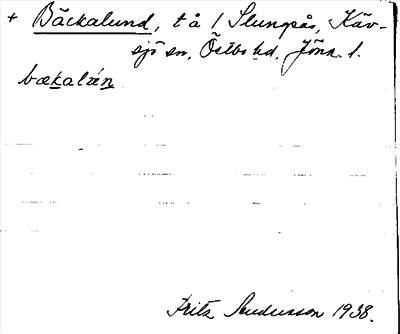 + Bäckalund, t å 1 Slungsås, Käv-
sjö sn, Östbo hd, Jönk. l.
bækalún
Fritz Andersson 1938.